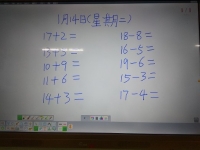 1月14日(星期二)
17+2= 18-8=
16-5=
10+9= 19-6=
11+6= 15-3=
14+3= 17-4=